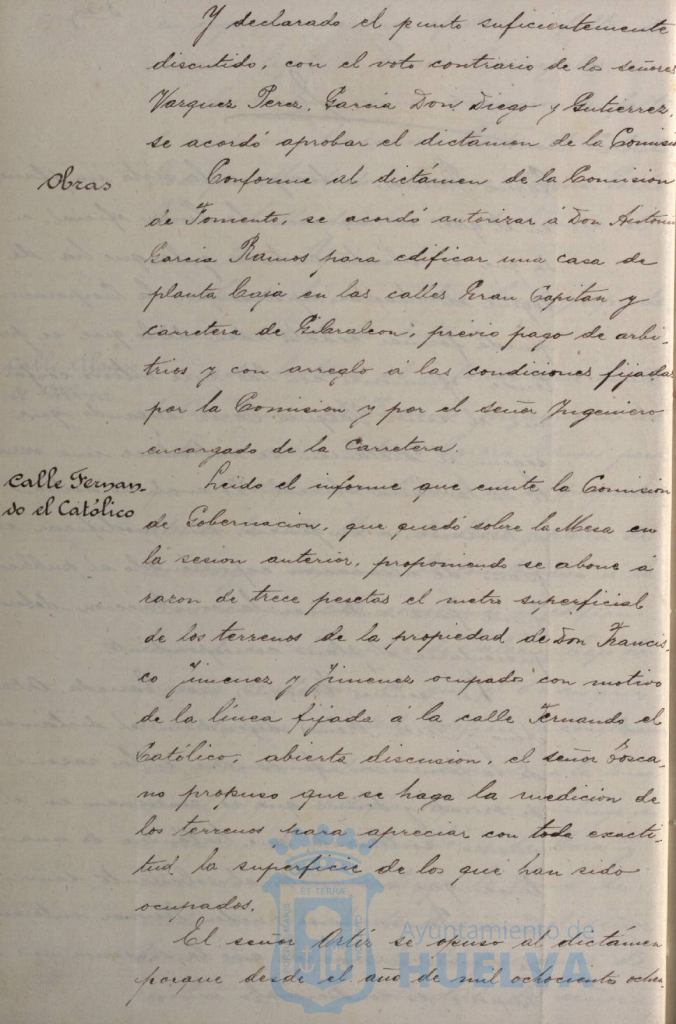 Y declarado el punto suficientemente
discutido, con el voto contrario de los señores
Vazquez Perez, Garcia Don Diego y Gutierrez,
se acordó aprobar el dictámen de la Comisi
Obras
Conforme al dictámen de la Comision
de Fomento, se acordó autorizar á Don Antonio
Garcia Ramos para edificar una casa de
planta baja en las calles Gran Capitan y
carretera de Gibraleon, prévio pago de arbi-
trios y con arreglo á las condiciones fijadas
por la Comision y por el señor Ingeniero
encargado de la Carretera.
Calle Fernan-
do el Católico
Leido el informe que emite la Comision
de Gobernacion, que quedó sobre la Mesa en
la sesion anterior, proponiendo se abone á
razon de trece pesetas el metro superficial
de los terrenos de la propiedad de Don Francis-
co Jimenez y Jimenez ocupados con motivo
de la línea fijada á la calle Fernando el
Católico, abierta discusion, el señor Tosca-
no propuso que se haga la medicion de
los terrenos para apreciar con toda exacti-
tud la superficie de los que han sido
ocupados.
El señor Ortiz se opuso al dictámen
porque desde el año de mil ochocientos ochen-
Ayuntamiento de
HUELVA